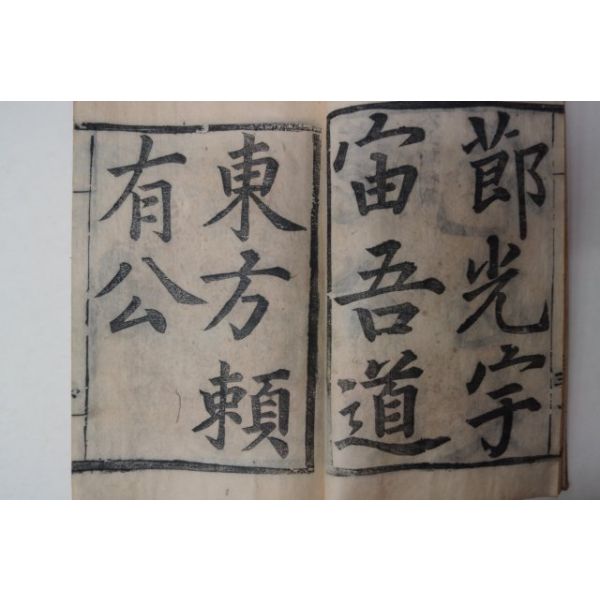 莭光宇
宙吾道
東方頼
有公